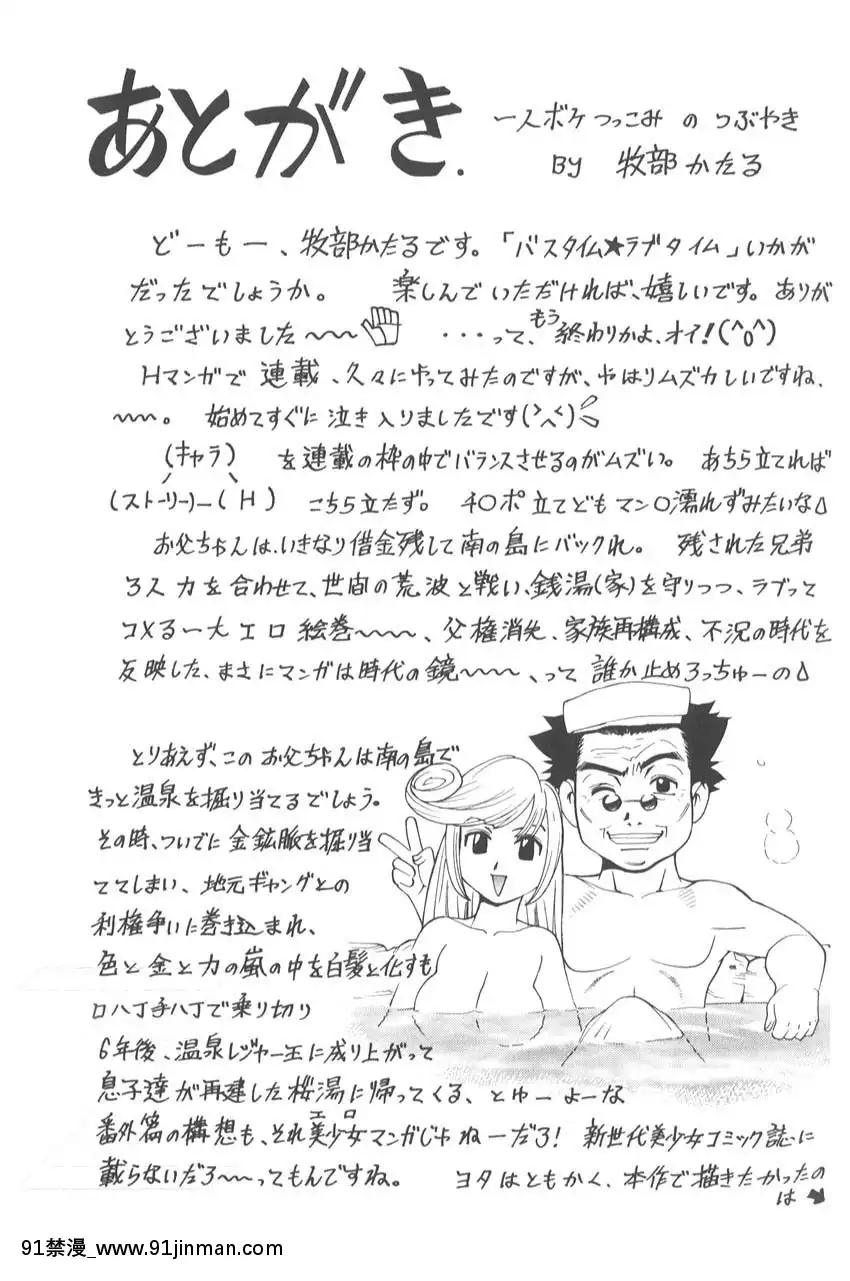 あとがき.
一人ボケつっこみ の つぶやき
BY 牧部かたる
どーもー、牧部かたるです。「バスタイム★ラブタイム」いかが
だったでしょうか。 楽しんでいただければ、嬉しいです。ありが
とうございました〜〜 ・・・って、もう終わりかよ、オイ!(^o^)
Hマンガで連載、久々にやってみたのですが、やはりムズカしいですね、
〜〜。 始めてすぐに泣き入りましたです(>へ<)
(キャラ) を連載の枠の中でバランスさせるのがムズい。 あちら立てれば
(ストーリー)―(H) こちら立たず。 チ〇ポ立てどもマン〇濡れずみたいな△
お父ちゃんは、いきなり借金残して南の島にバックれ。 残された兄弟
3人力を合わせて、世間の荒波と戦い、銭湯(家)を守りつつ、ラブって
コメる一大エロ絵巻〜〜〜、父権消失、家族再構成、不況の時代を
反映した、まさにマンガは時代の鏡〜〜〜、って誰か止めろっちゅーの△
とりあえず、このお父ちゃんは南の島で
きっと温泉を掘り当てるでしょう。
その時、ついでに金鉱脈を掘り当
ててしまい、地元ギャングとの
利権争いに巻き込まれ、
色と金と力の嵐の中を白髪と化すも
口八丁手八丁で乗り切り
6年後、温泉レジャー王に成り上がって
息子達が再建した桜湯に帰ってくる、とゅーよーな
番外篇の構想も、それ美少女エロマンガじゃねーだろ! 新世代美少女コミック誌に
載らないだろ〜〜ってもんですね。 ヨタはともかく、本作で描きたかったの
は
91禁漫_www.91jinman.com